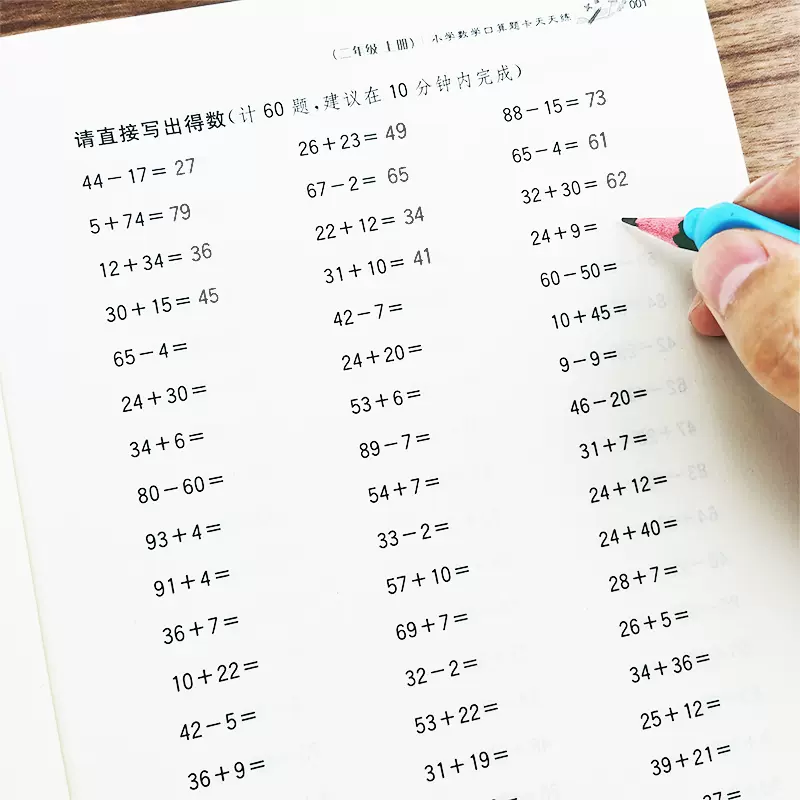 （二年级上册） 小学数学口算题卡天天练 001
请直接写出得数（计 60 题，建议在 10 分钟内完成）
44－17＝27 26＋23＝49 88－15＝73
5＋74＝79 67－2＝65 65－4＝61
12＋34＝36 22＋12＝34 32＋30＝62
30＋15＝45 31＋10＝41 24＋9＝
65－4＝ 42－7＝ 60－50＝
24＋30＝ 24＋20＝ 10＋45＝
34＋6＝ 53＋6＝ 9－9＝
80－60＝ 89－7＝ 46－20＝
93＋4＝ 54＋7＝ 31＋7＝
91＋4＝ 33－2＝ 24＋12＝
36＋7＝ 57＋10＝ 24＋40＝
10＋22＝ 69＋7＝ 28＋7＝
42－5＝ 32－2＝ 26＋5＝
36＋9＝ 53＋22＝ 34＋36＝
31＋19＝ 25＋12＝
39＋21＝